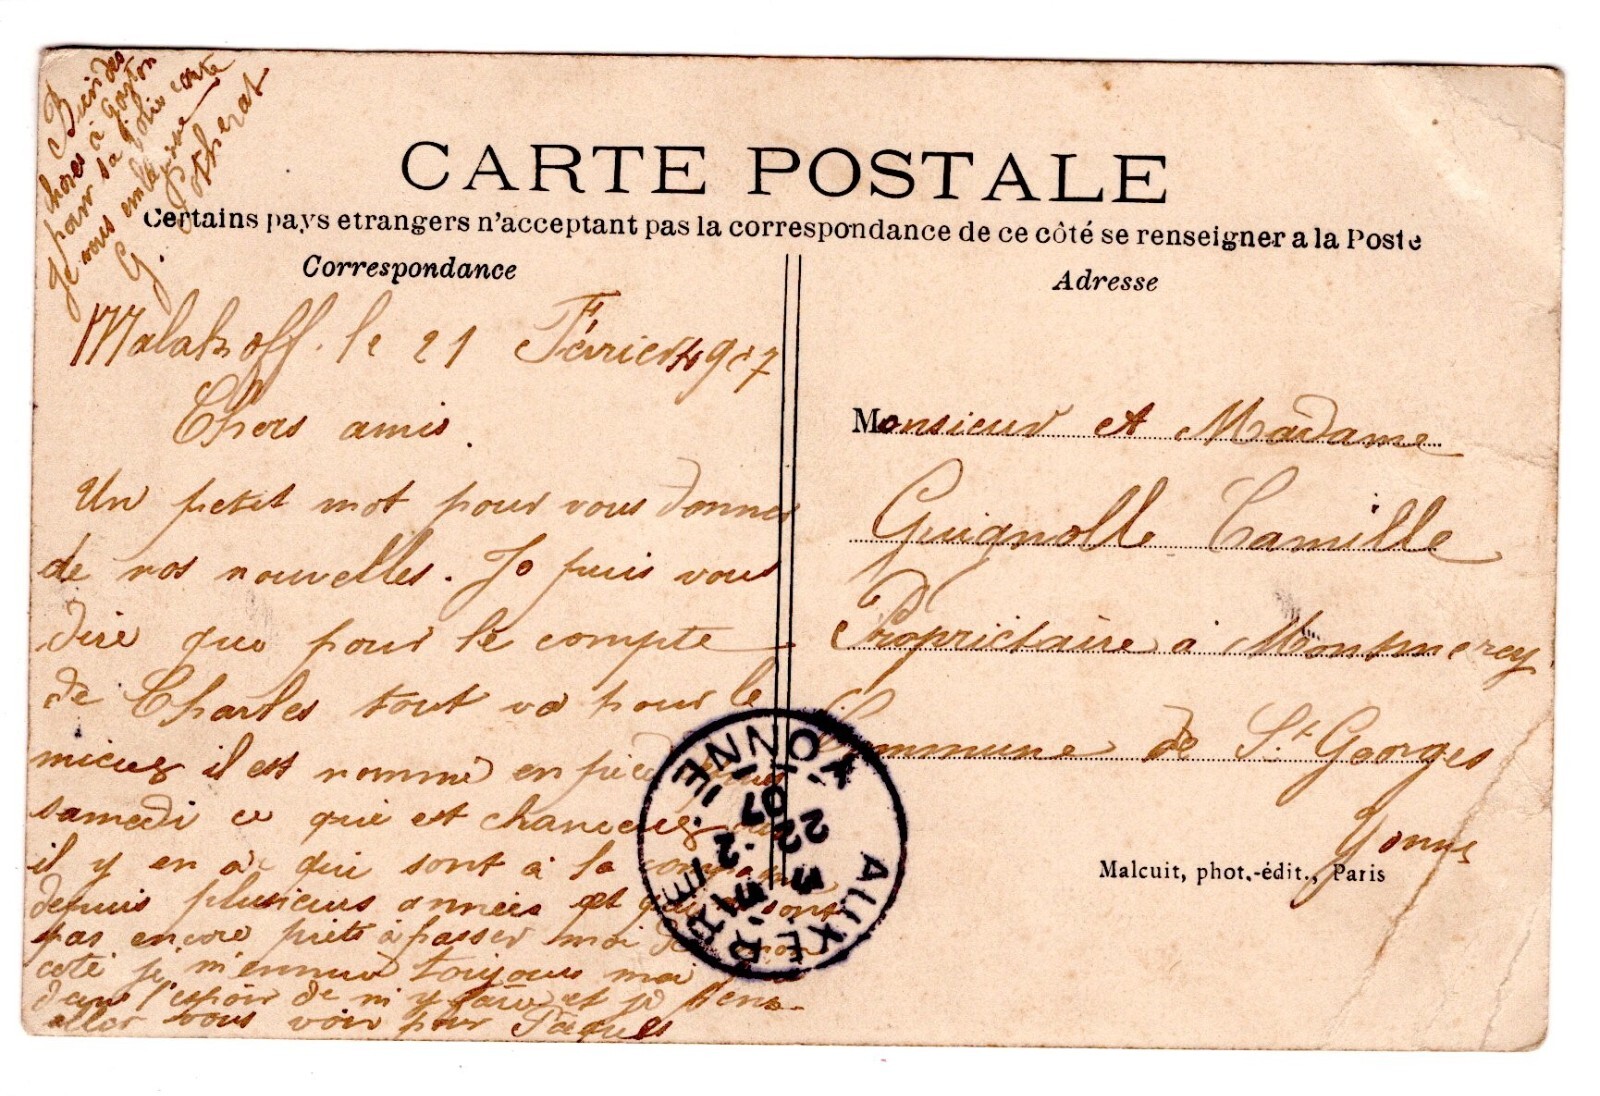 Bien des
choses à Gaston
pour sa jolie carte
Je vous embrasse
G. Cotherat
CARTE POSTALE
Certains pays etrangers n'acceptant pas la correspondance de ce côté se renseigner a la Poste
Correspondance
Malakoff. le 21 Février 1907
Chers amis.
Un petit mot pour vous donner
de nos nouvelles. Je puis vous
dire que pour le compte
de Charles tout va pour le
mieux il est nommé en pied
samedi ce qui est chanceux car
il y en a qui sont à la
depuis plusieurs années et qui sont
pas encore prêts à passer moi de mon
coté je m'ennuie toujours mai
dans l'espoir de m'y faire et je pense
aller vous voir pour Pâques
Adresse
Monsieur et Madame
Guignolle Camille
Propriétaire à Montmercy
Commune de St. Georges
Yonne
Malcuit, phot.-édit., Paris
AUXERRE YONNE
22 -2 07